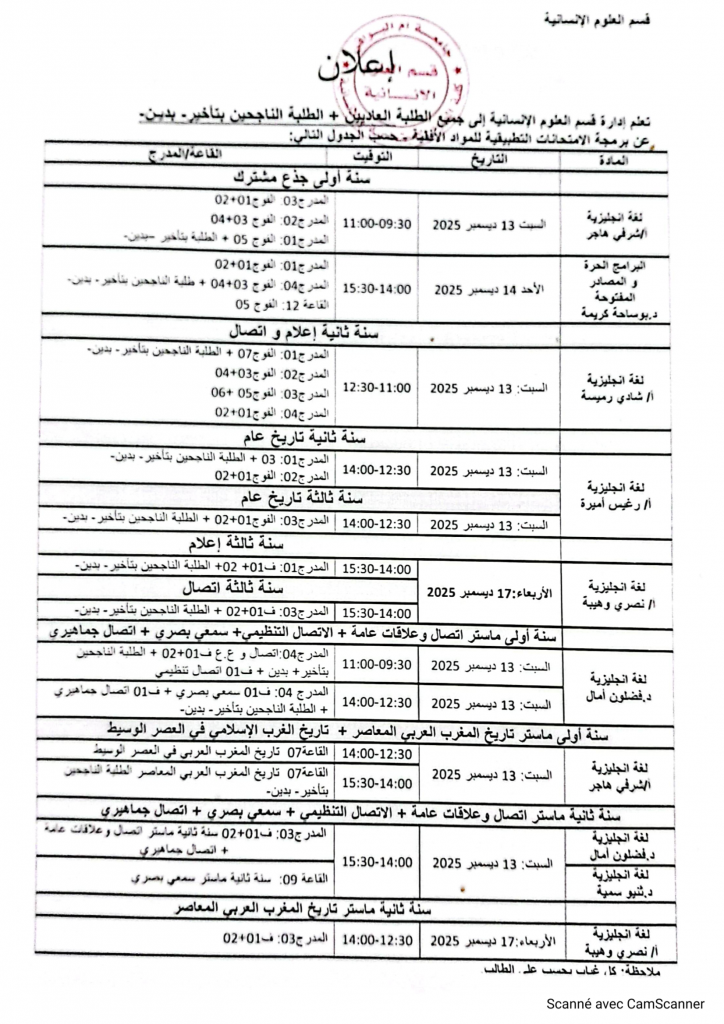 قسم العلوم الإنسانية
إعلان
جامعة ام البواقي
قسم العلوم الانسانية
تعلم إدارة قسم العلوم الإنسانية إلى جميع الطلبة العاديين + الطلبة الناجحين بتأخير- بدين-
عن برمجة الامتحانات التطبيقية للمواد الأفقية حسب الجدول التالي:
المادة التاريخ التوقيت القاعة/المدرج
سنة أولى جذع مشترك
لغة انجليزية
أ/شرفي هاجر
السبت 13 ديسمبر 2025
11:00-09:30
المدرج03: الفوج01+02
المدرج02: الفوج 03+04
المدرج01: الفوج 05 + الطلبة بتأخير –بدين-
البرامج الحرة
و المصادر
المفتوحة
د.بوساحة كريمة
الأحد 14 ديسمبر 2025
15:30-14:00
المدرج01: الفوج01+02
المدرج04: الفوج 03+04 + طلبة الناجحين بتأخير- بدين-
القاعة 12: الفوج 05
سنة ثانية إعلام و اتصال
لغة انجليزية
أ/ شادي رميسة
السبت: 13 ديسمبر 2025
12:30-11:00
المدرج01: الفوج07 + الطلبة الناجحين بتأخير- بدين-
المدرج02: الفوج03+04
المدرج03: الفوج05 +06
المدرج04: الفوج01+02
سنة ثانية تاريخ عام
لغة انجليزية
أ/ رغيس أميرة
السبت: 13 ديسمبر 2025
14:00-12:30
المدرج01: 03 + الطلبة الناجحين بتأخير- بدين-
المدرج02: الفوج01+02
سنة ثالثة تاريخ عام
السبت: 13 ديسمبر 2025
14:00-12:30
المدرج03: الفوج01+02 + الطلبة الناجحين بتأخير- بدين-
سنة ثالثة إعلام
لغة انجليزية
أ/ نصري وهيبة
الأربعاء:17 ديسمبر 2025
15:30-14:00
المدرج01: ف01+ 02+ الطلبة الناجحين بتأخير- بدين-
سنة ثالثة اتصال
15:30-14:00
المدرج03: ف01+02 + الطلبة الناجحين بتأخير- بدين-
سنة أولى ماستر اتصال وعلاقات عامة + الاتصال التنظيمي+ سمعي بصري + اتصال جماهيري
لغة انجليزية
د.فضلون أمال
السبت: 13 ديسمبر 2025
11:00-09:30
المدرج04:اتصال و ع.ع ف01+02 + الطلبة الناجحين
بتأخير+ بدين + ف01 اتصال تنظيمي
السبت: 13 ديسمبر 2025
14:00-12:30
المدرج 04: ف01 سمعي بصري + ف01 اتصال جماهيري
+ الطلبة الناجحين بتأخير- بدين-
سنة أولى ماستر تاريخ المغرب العربي المعاصر + تاريخ الغرب الإسلامي في العصر الوسيط
لغة انجليزية
أ/شرفي هاجر
السبت: 13 ديسمبر 2025
14:00-12:30
القاعة07 تاريخ المغرب العربي في العصر الوسيط
15:30-14:00
القاعة07 تاريخ المغرب العربي المعاصر الطلبة الناجحين
بتأخير- بدين-
سنة ثانية ماستر اتصال وعلاقات عامة + الاتصال التنظيمي + سمعي بصري + اتصال جماهيري
لغة انجليزية
د.فضلون أمال
السبت: 13 ديسمبر 2025
15:30-14:00
المدرج03: ف01+02 سنة ثانية ماستر اتصال وعلاقات عامة
+ اتصال جماهيري
لغة انجليزية
د.ثنيو سمية
القاعة 09: سنة ثانية ماستر سمعي بصري
سنة ثانية ماستر تاريخ المغرب العربي المعاصر
لغة انجليزية
أ/ نصري وهيبة
الأربعاء:17 ديسمبر 2025
14:00-12:30
المدرج03: ف01+02
ملاحظة: كل غياب يحسب على الطالب
Scanné avec CamScanner